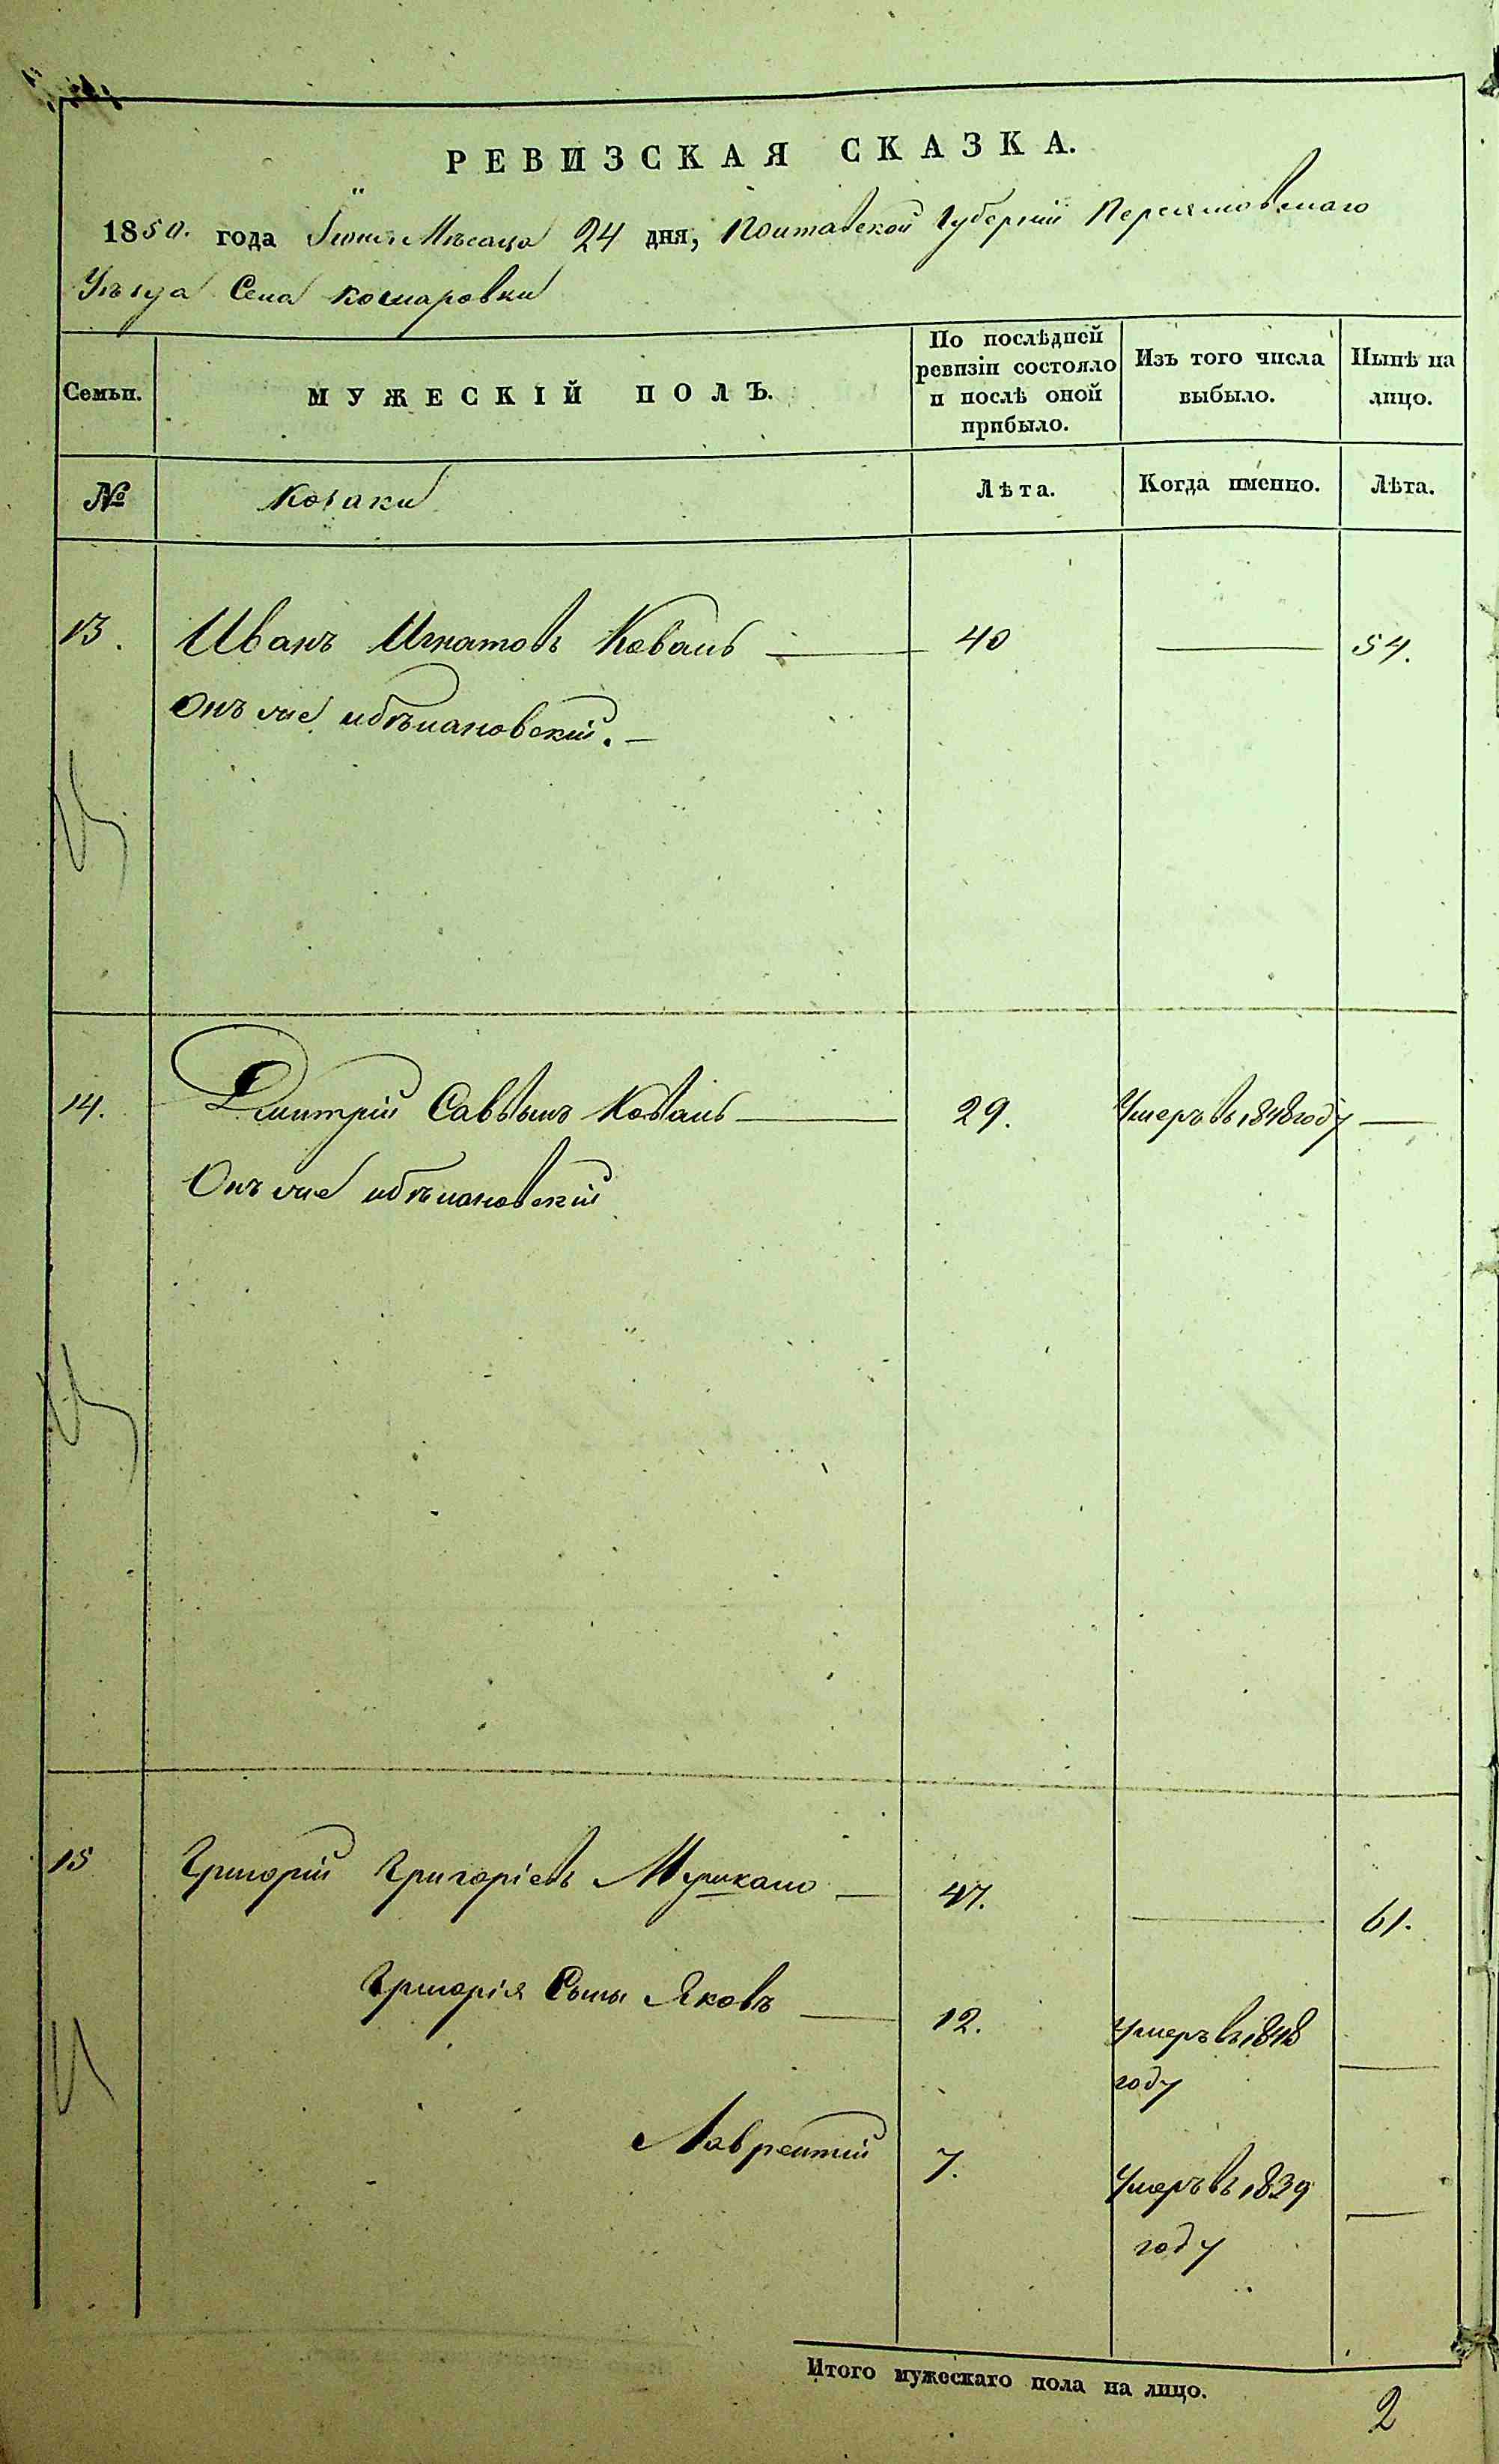 РЕВИЗСКАЯ СКАЗКА.
1850. года Іюня Мѣсяца 24 дня, Полтавской Губерніи Переяславскаго
Уѣзда Села Комаровки
Семьи.
МУЖЕСКІЙ ПОЛЪ.
По послѣдней ревизіи состояло и послѣ оной прибыло.
Изъ того числа выбыло.
Нынѣ на лицо.
№
Козаки
Лѣта.
Когда именно.
Лѣта.
13. Иванъ Игнатовъ Коваль — 40 — 54.
Онъ же
14. Дмитрій Саввынъ Коваль — 29. Умеръ въ 1848 году —
Онъ же
15 Григорій Григоріевъ — 47. — 61.
Григорія Сыны Яковъ — 12. Умеръ въ 1848 году —
Лаврентій 7. Умеръ въ 1839 году —
Итого мужескаго пола на лицо.
2